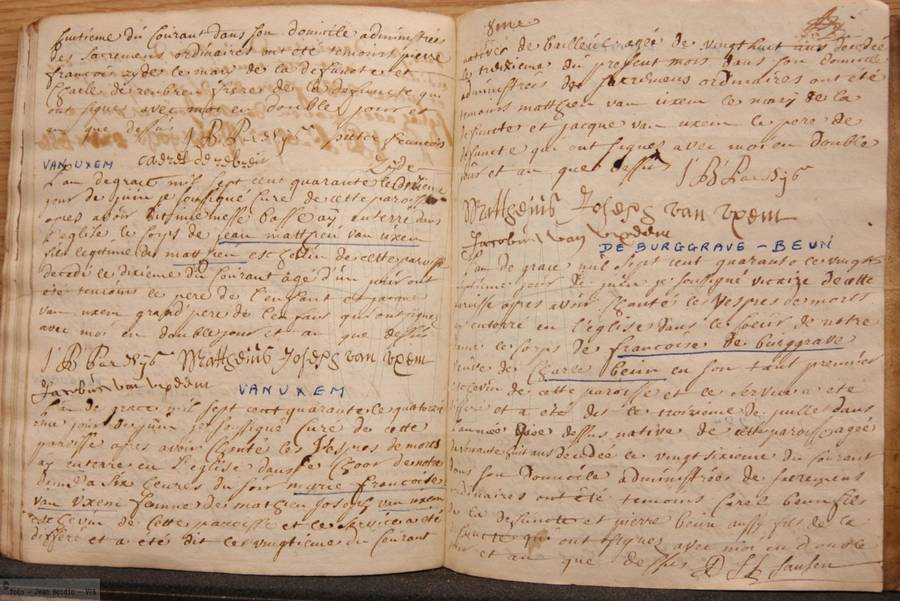 huitieme du Courant dans son domicile administrés
des sacremens ordinaires ont été temoins pierre
françois zyde le mary de la defuncte et
frere de la defuncte qui
ont signes avec moi en double jour et
an que dessus J B Parsys pieter franсois
VAN UXEM
L'an de grace mil sept cent quarante le
jour de juin je soussigné curé de cette paroisse
apres avoir dit une messe basse ay enterré dans
l'eglise le corps de jean mattheu van uxem
fils legitime de matthieu eschevin de cette paroisse
decedé le dixieme du Courant agé d'un jour ont
été temoins le pere de l'enfant et jacque
van uxem grand pere de l'enfant qui ont signes
avec moi en double jour et an que dessus
J B Parsys Mattheus Joseph van vxem
Jacobus van vxem
VAN UXEM
L'an de grace mil sept cent quarante le quatorze
jour de juin je soussigné Curé de cette
paroisse apres avoir Chanté les Vespres de morts
ay enterré en l'eglise dans le Choor de notre
dame a six heures du soir marie francoise
van vxem femme de matthieu joseph van uxem
eschevin de cette paroisse et le service a été
differé et a été dit le vingtieme du Courant
native de bailleul agée de vingt huit ans decedée
le treizieme du present mois dans son domicile
administrées des sacremens ordinaires ont été
temoins matthieu van uxem le mary de la
defuncte et jacque van uxem le pere de
defuncte qui ont signes avec moi en double
jour et an que dessus J B Parsys
Mattheus Joseph van vxem
Jacobus van vxem
DE BURGGRAVE - BEUN
L'an de grace mil sept cent quarante le vingt
jour de juin je soussigné vicaire de cette
paroisse apres avoir Chanté les Vespres de morts
ay enterré en l'église dans le Coeur de notre
dame le corps de francoise de burggrave
veuve de Charle beun en son tant premier
eschevin de cette paroisse et le service a été
differé et a été dit le troisieme de juillet dans
l'année que dessus native de cette paroisse agée
huit ans decedée le vingt sixieme du Courant
dans son domicile administrées de sacremens
ordinaires ont été temoins Carel beun fils
de la defuncte et pierre beun aussy fils de la
defuncte qui ont signes avec moi en double
jour et an que dessus
foto - Jean Bordin - VIA